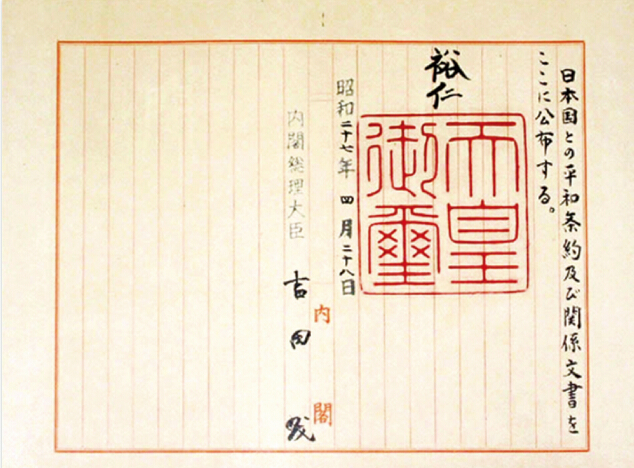 日本国との平和条約及び関係文書を
ここに公布する。
裕仁
天皇
御璽
昭和二十七年 四月二十八日
内閣総理大臣 吉田茂
内閣